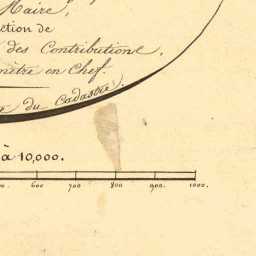 Maire,
ction de
des Contributions,
mètre en Chef.
du Cadastre.
à 10,000.
600 700 800 900 1000.